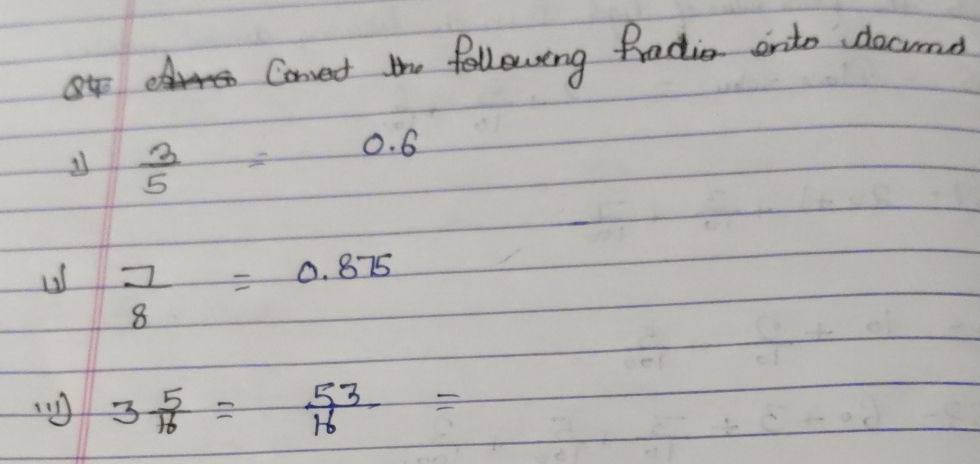 Convert the following fractio into decima
i) 3/5 = 0.6
ii) 7/8 = 0.875
iii) 3 5/16 = 53/16 =